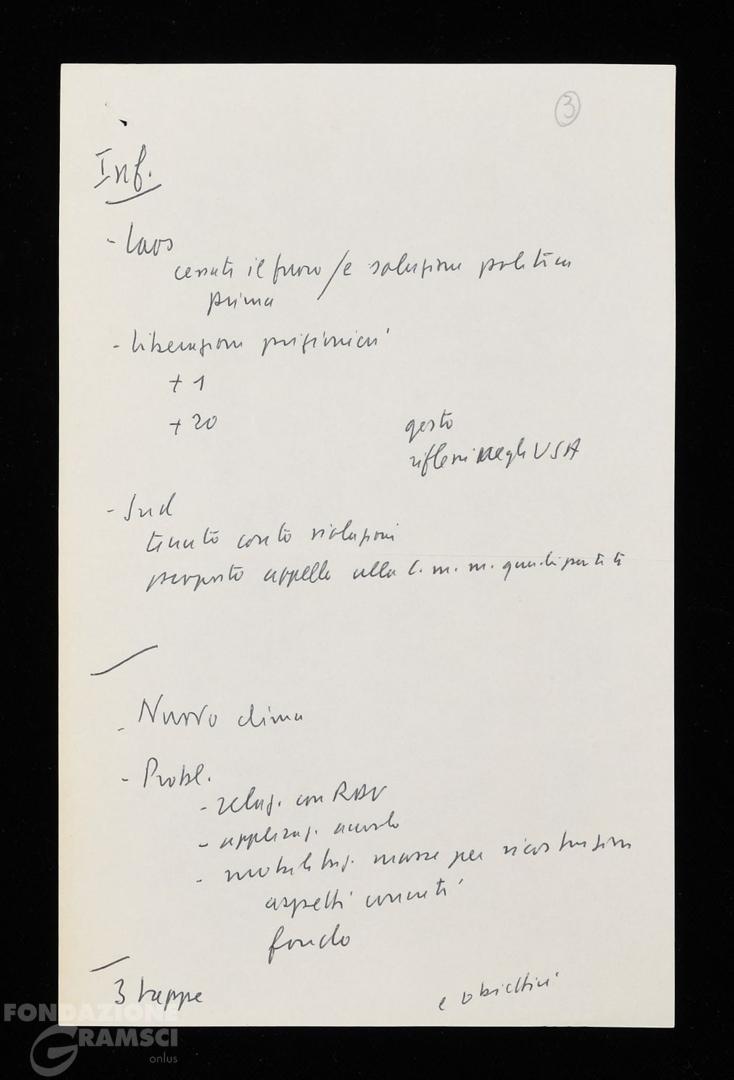 3
Inf.
- Laos
cessate il fuoco / e soluzione politica
prima
- liberazione prigionieri
+ 1
+ 20
gesto
riflessi negli USA
- Sud
tenuto conto violazioni
proposto appello alla c. m. m. quadripartita
- Nuovo clima
- Probl.
- relaz. con RDV
- applicaz. accordo
- mobilitaz. masse per ricostruzione
aspetti concreti
fondo
3 tappe
e obiettivi
FONDAZIONE
GRAMSCI
onlus